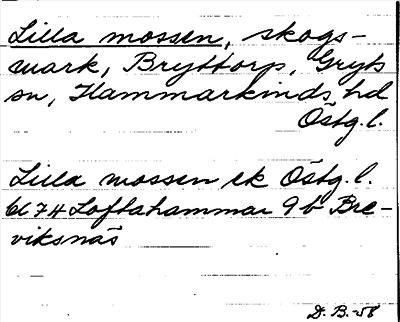 Lilla mossen, skogs-
mark, Bryttorp, Gryts
sn, Hammarkinds hd
Östg. l.
Lilla mossen ek Östg. l.
bl 74 Loftahammar 9 b Bre-
viksnäs
D. B. -58